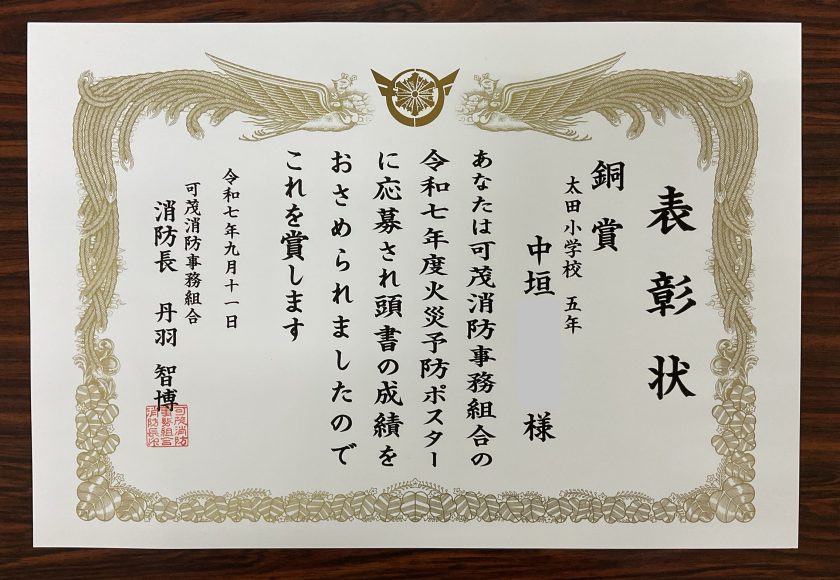 表彰状
銅賞
太田小学校 五年
中垣 様
あなたは可茂消防事務組合の
令和七年度火災予防ポスター
に応募され頭書の成績を
おさめられましたので
これを賞します
令和七年九月十一日
可茂消防事務組合
消防長 丹羽 智博